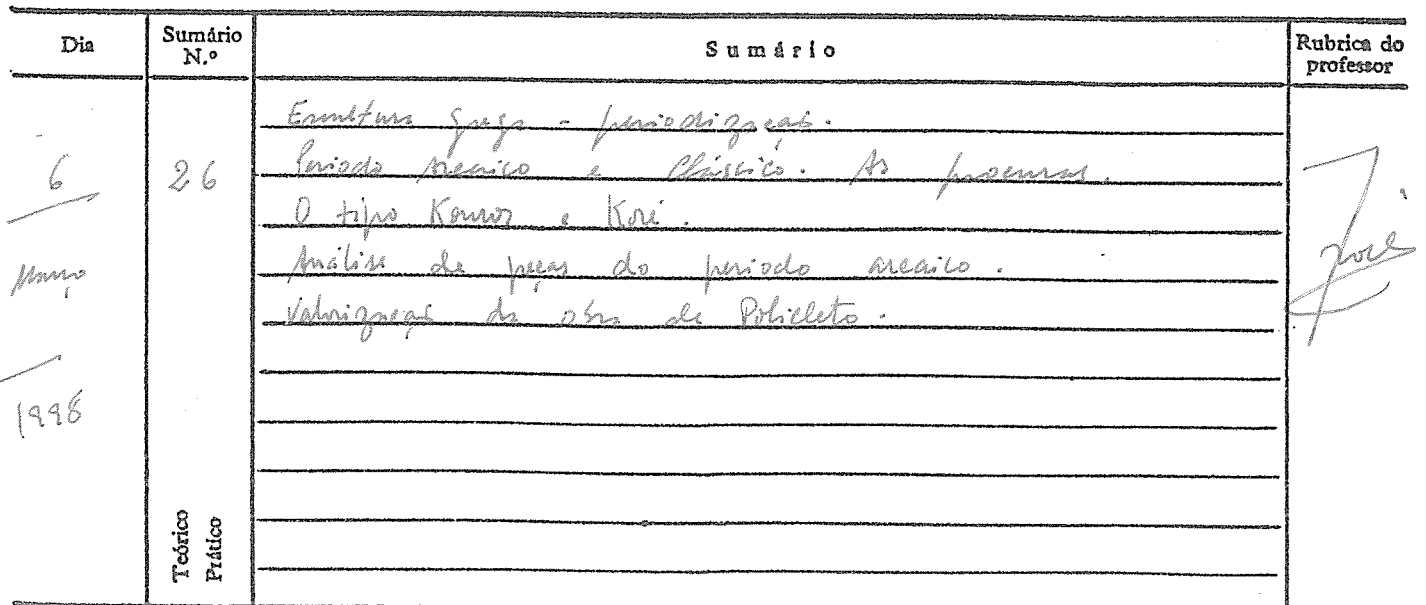 Dia
Sumário N.º
Sumário
Rubrica do professor
6
Março
1998
26
Escultura grega - periodização.
Período arcaico e Clássico. As procuras.
O tipo Kouros e Koré.
Análise de peças do período arcaico.
Valorização da obra de Policleto.
Teórico
Prático